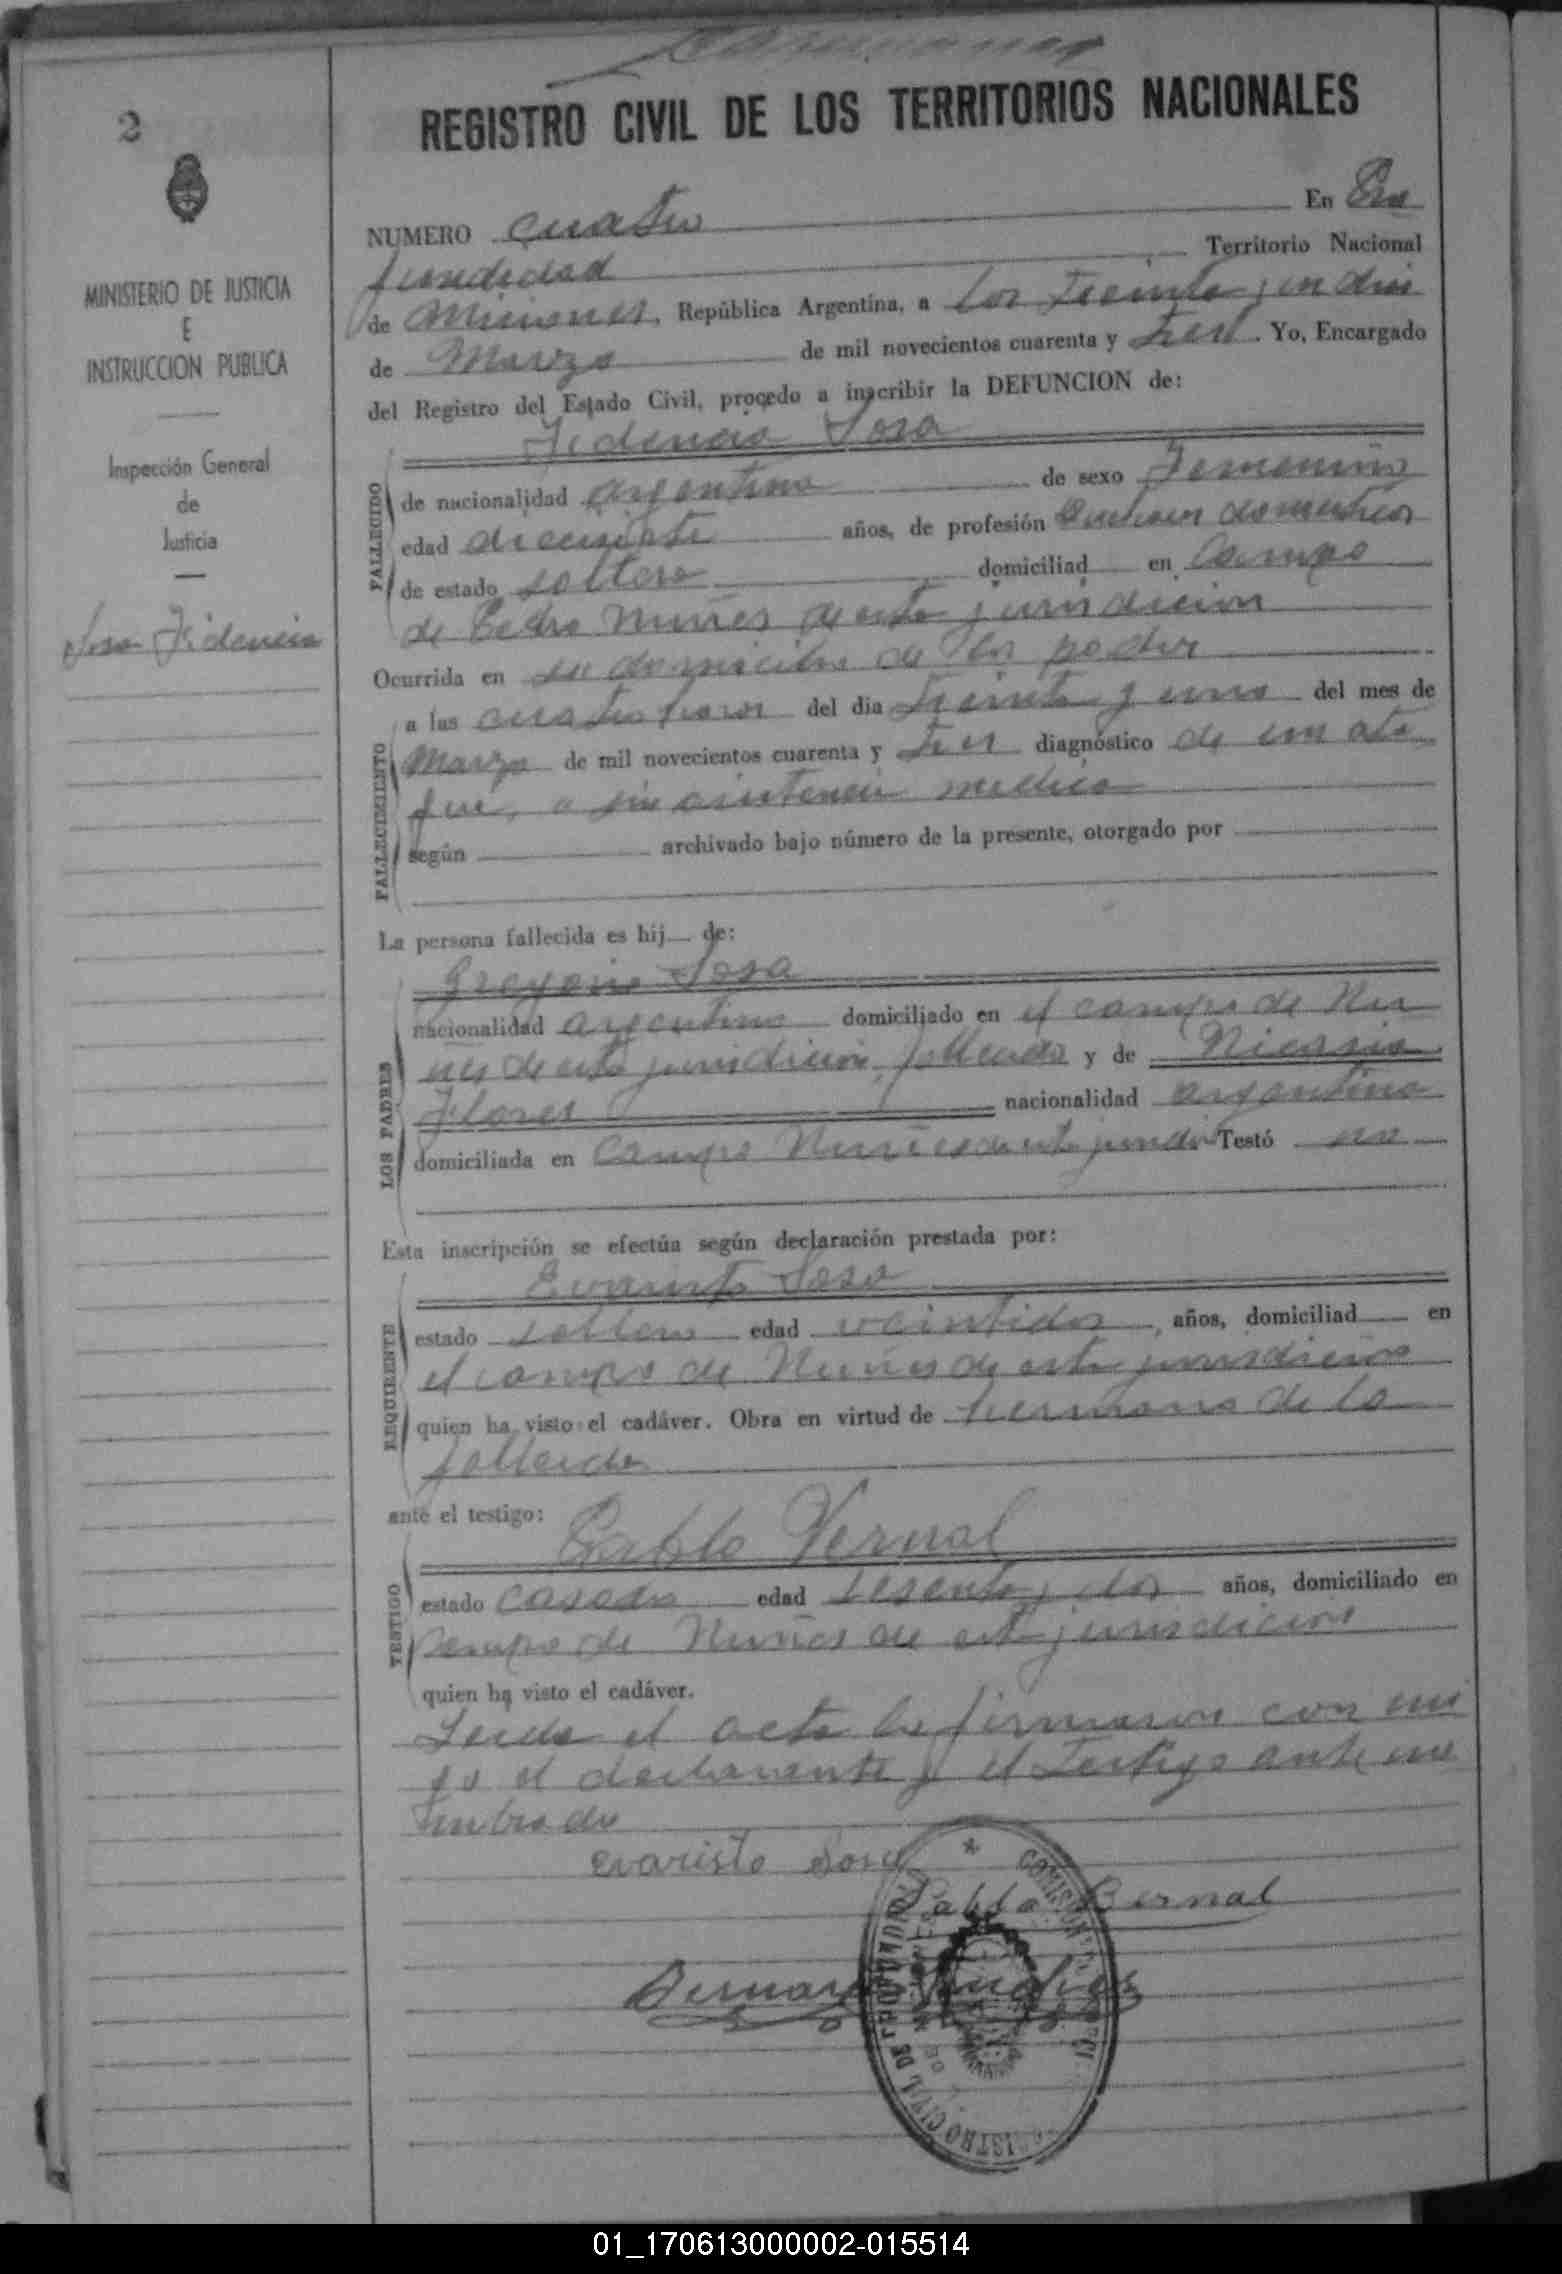 2
MINISTERIO DE JUSTICIA
E
INSTRUCCION PUBLICA
Inspección General
de
Justicia
Sosa Fidencia
REGISTRO CIVIL DE LOS TERRITORIOS NACIONALES
NUMERO cuatro En Pro
fundidad Territorio Nacional
de Misiones, República Argentina, a los treinta y un dias
de Marzo de mil novecientos cuarenta y tres. Yo, Encargado
del Registro del Estado Civil, procedo a inscribir la DEFUNCION de:
Fidencia Sosa
FALLECIDO
de nacionalidad argentina de sexo Femenino
edad diecisiete años, de profesión Quehacer domesticos
de estado soltera domiciliad en Campo
de Pedro Nuñes de esta jurisdicion
Ocurrida en su domicilio de los padres
FALLECIMIENTO
a las cuatro horas del dia treinta y uno del mes de
Marzo de mil novecientos cuarenta y tres diagnóstico de un ata
que, a sin asistencia medica
según archivado bajo número de la presente, otorgado por
La persona fallecida es hij de:
Gregorio Sosa
LOS PADRES
nacionalidad argentino domiciliado en el campo de Nu
ñes de esta jurisdicion, fallecido y de Nicasia
Flores nacionalidad argentina
domiciliada en Campo Nuñes de esta jurisdi Testó no
Esta inscripción se efectúa según declaración prestada por:
Evaristo Sosa
REQUIRENTE
estado soltero edad veintidos, años, domiciliad en
el campo de Nuñes de esta jurisdicion
quien ha visto el cadáver. Obra en virtud de hermano de la
fallecida
ante el testigo:
Pablo Vernal
TESTIGO
estado casado edad sesenta y dos años, domiciliado en
campo de Nuñes de esta jurisdicion
quien ha visto el cadáver.
Leida el acta la firmaron con mi
go el declarante y el testigo ante no
mbrado
evaristo Sosa
Pablo Bernal
COMISION
REGISTRO CIVIL DE PROFUNDIDAD
01_170613000002-015514